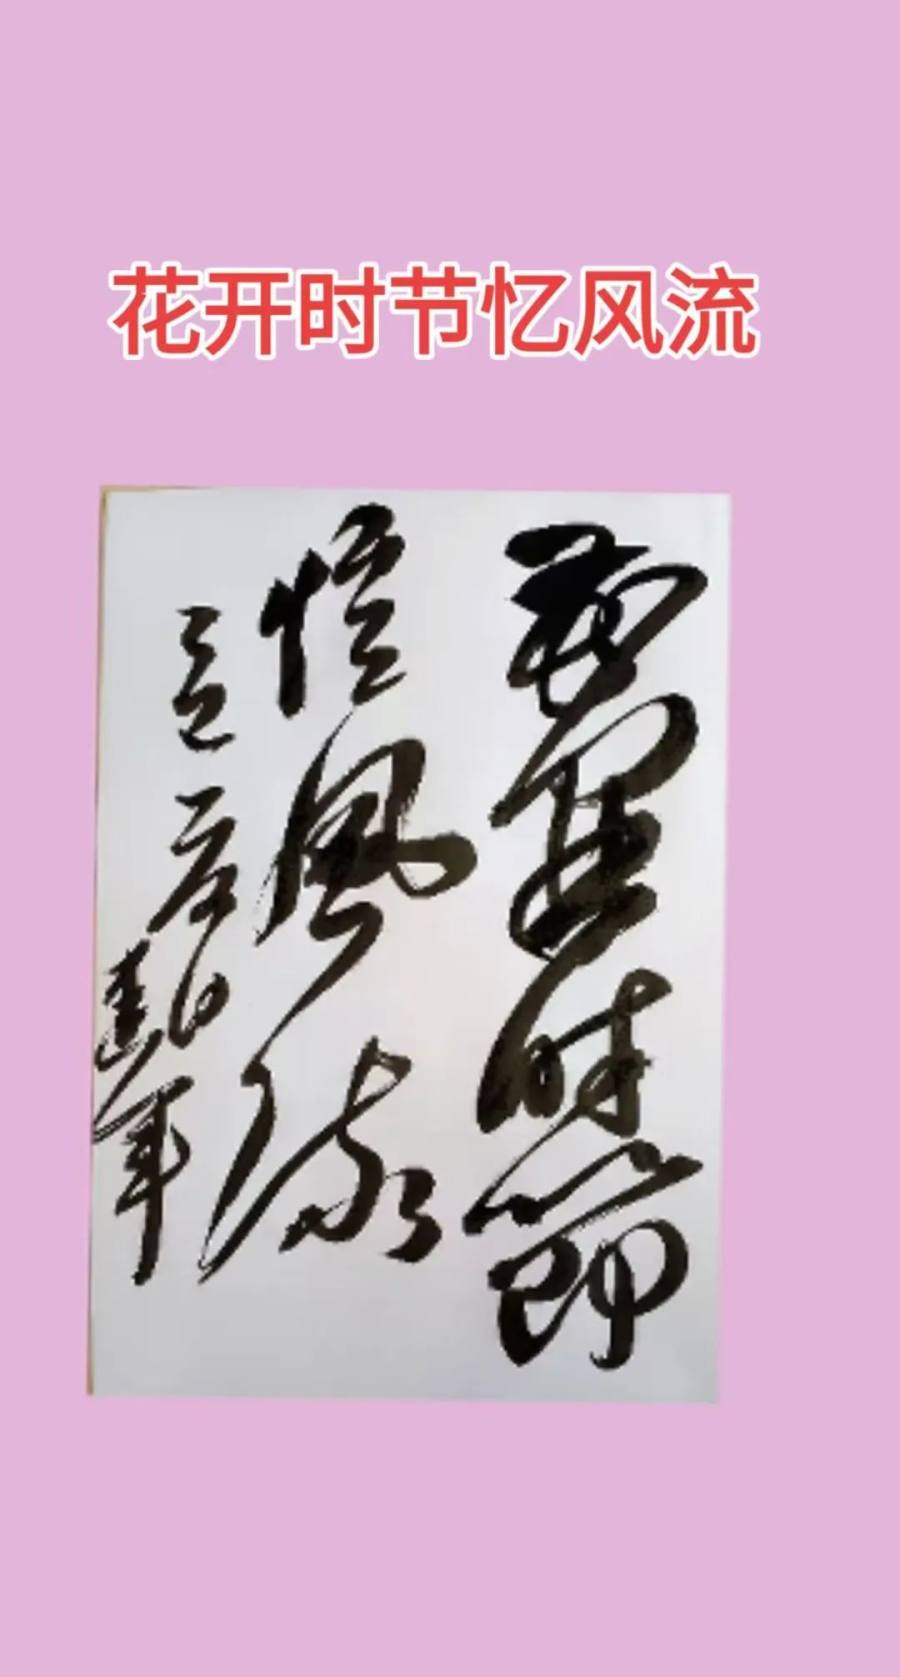 花开时节忆风流
花開時節
憶風流
建军